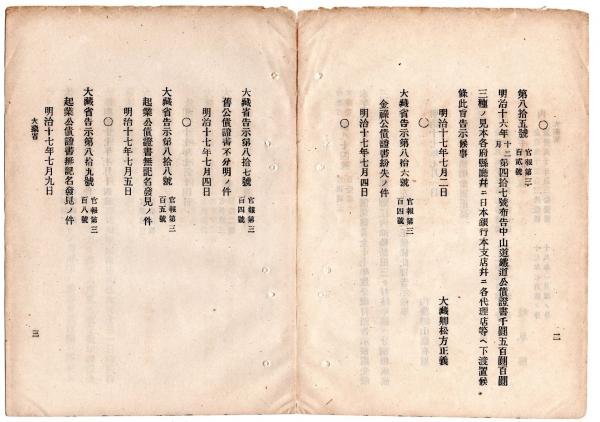 〇
第八拾五號 官報第三百貳號
明治十六年十二月第四拾七號布告中山道鐵道公債證書千圓五百圓百圓
三種ノ見本各府縣廳幷ニ日本銀行本支店幷ニ各代理店等ヘ下渡置候
條此旨告示候事
明治十七年七月二日 大藏卿松方正義
〇
大藏省告示第八拾六號 官報第三百四號
金祿公債證書紛失ノ件
明治十七年七月四日
二
〇
大藏省告示第八拾七號 官報第三百四號
舊公債證書不分明ノ件
明治十七年七月四日
〇
大藏省告示第八拾八號 官報第三百五號
起業公債證書無記名發見ノ件
明治十七年七月五日
〇
大藏省告示第八拾九號 官報第三百八號
起業公債證書無記名發見ノ件
明治十七年七月九日
大藏省
三